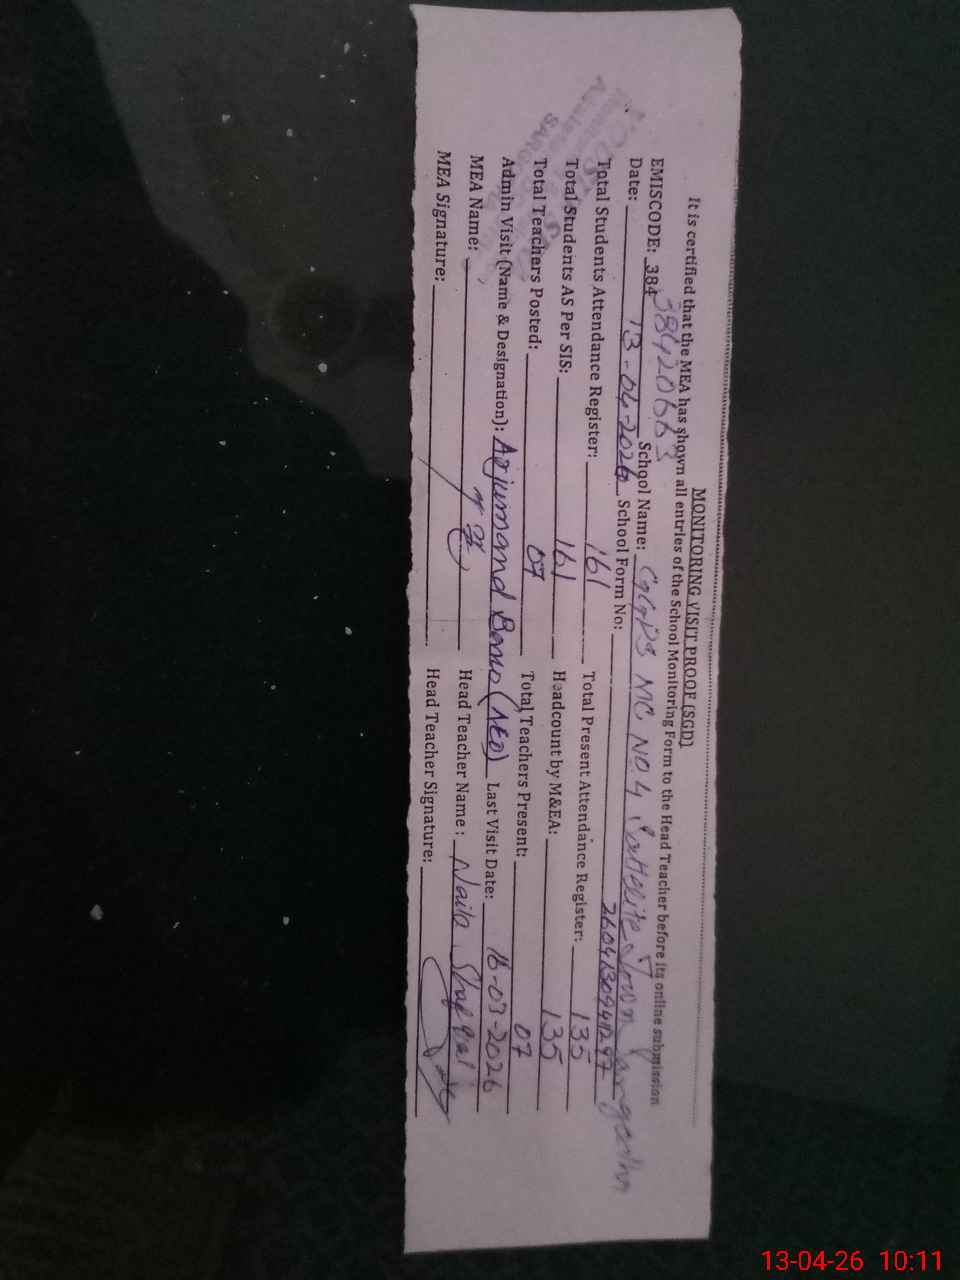 MONITORING VISIT PROOF (SGD)
It is certified that the MEA has shown all entries of the School Monitoring Form to the Head Teacher before its online submission
EMISCODE: 384 38420663 School Name: GGPS MC NO.4 Sattelite Town Sargodha
Date: 13-04-2026 School Form No:
Total Students Attendance Register: 161 Total Present Attendance Register: 135
Total Students AS Per SIS: 161 Headcount by M&EA: 135
Total Teachers Posted: 07 Total Teachers Present: 07
Admin Visit (Name & Designation): Arjumand Bano (AEO) Last Visit Date: 16-03-2026
MEA Name: Head Teacher Name: Naila
MEA Signature: Head Teacher Signature:
13-04-26 10:11